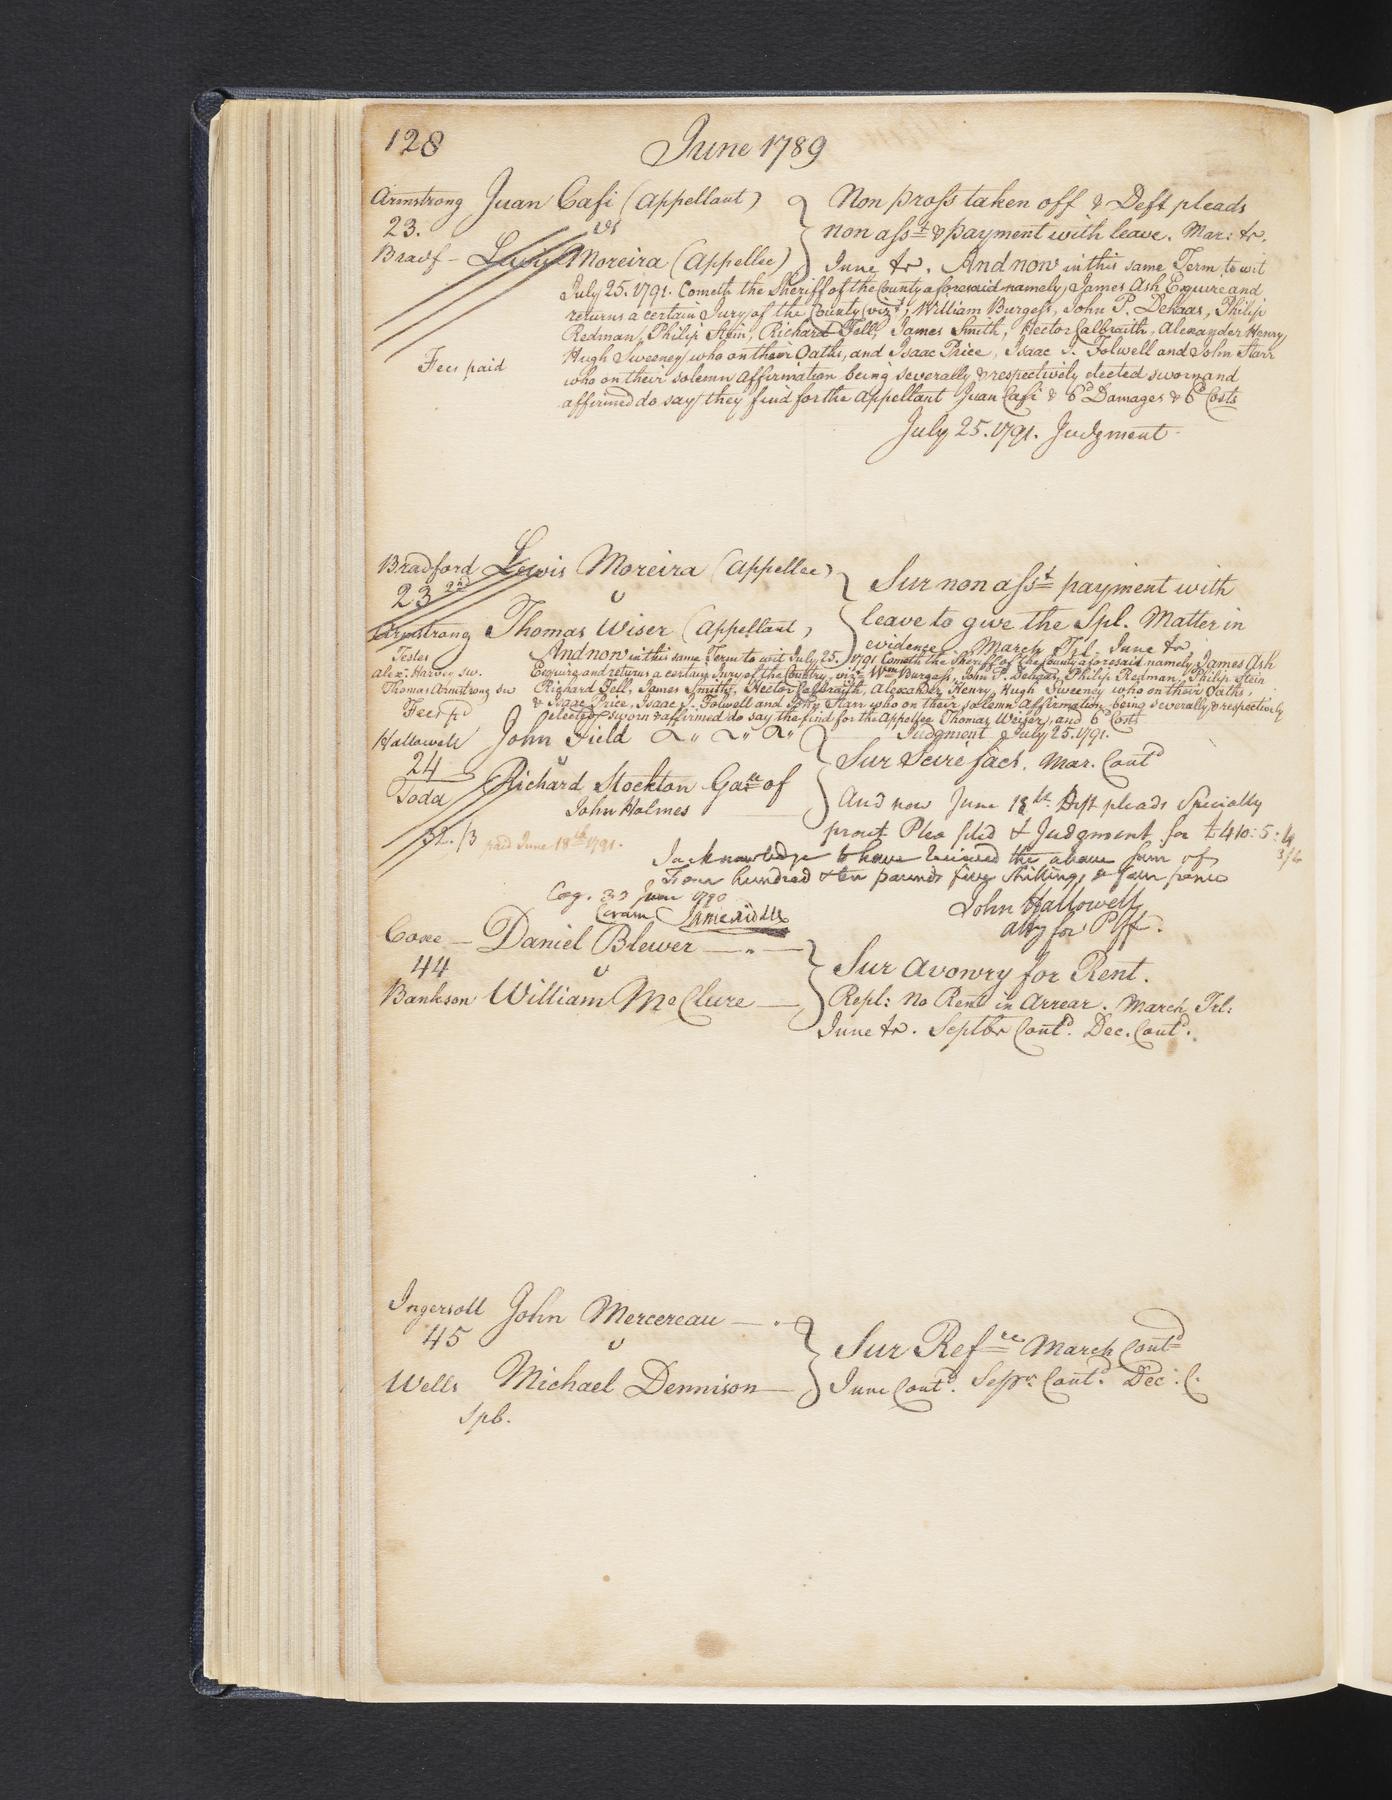 128
June 1789
Armstrong Juan Cafi (Appellant)
23. vs
Bradf - Lewis Moreira (Appellee)
Non pross taken off & Deft pleads
non asst & payment with leave. Mar: tr.
June tr. And now in this same Term to wit
July 25. 1791. Cometh the Sheriff of the County aforesaid namely, James Ash Esquire and
returns a certain Jury of the County (vizt) William Burgess, John P. Dehaas, Philip
Redman, Philip Stein, Richard Tell, James Smith, Hector Calbraith, Alexander Henry
Hugh Sweeney who on their Oaths, and Isaac Price, Isaac S. Folwell and John Starr
who on their solemn Affirmation being severally & respectively elected sworn and
affirmed do say they find for the Appellant Juan Cafi & 6d Damages & 6d Costs
Fees paid
July 25. 1791. Judgment
Bradford Lewis Moreira (Appellee)
23 2nd v
Armstrong Thomas Wiser (Appellant)
Sur non asst payment with
leave to give the Spl. Matter in
evidence. March Trl. June tr.
Testes
Alex: Harvey sw.
Thomas Armstrong sw
Fees pd
And now in this same Term to wit July 25. 1791 Cometh the Sheriff of the County aforesaid namely, James Ash
Esquire and returns a certain Jury of the Country, vizt Wm Burgess, John P. Dehaas, Philip Redman, Philip Stein
Richard Tell, James Smith, Hector Calbraith, Alexander Henry, Hugh Sweeney who on their Oaths,
& Isaac Price, Isaac S. Folwell and John Starr who on their solemn Affirmation being severally & respectively
elected sworn & affirmed do say the find for the Appellee Thomas Weiser, and 6d Costs
Judgment July 25. 1791.
Hallowell John Field
24 v
Todd Richard Stockton Garee of
John Holmes
Sur Scire facs. Mar. Contd
And now June 18th. Deft pleads Specially
prout Plea filed & Judgment for £410:5:4
32./3 paid June 18th 1791.
I acknowledge to have received the above sum of
Four hundred & ten pounds five shillings & four pence
Cog. 30 June 1790
Coram
John Hallowell
atty for Plff.
Coxe - Daniel Blewer
44 v
Bankson William McClure
Sur Avowry for Rent.
Repl: No Rent in Arrear. March Trl:
June tr. Septbr Contd. Dec. Contd.
Ingersoll John Mercereau
45 v
Wells Michael Dennison
Spb.
Sur Refce March Contd
June Contd. Sepr. Contd. Dec. C.